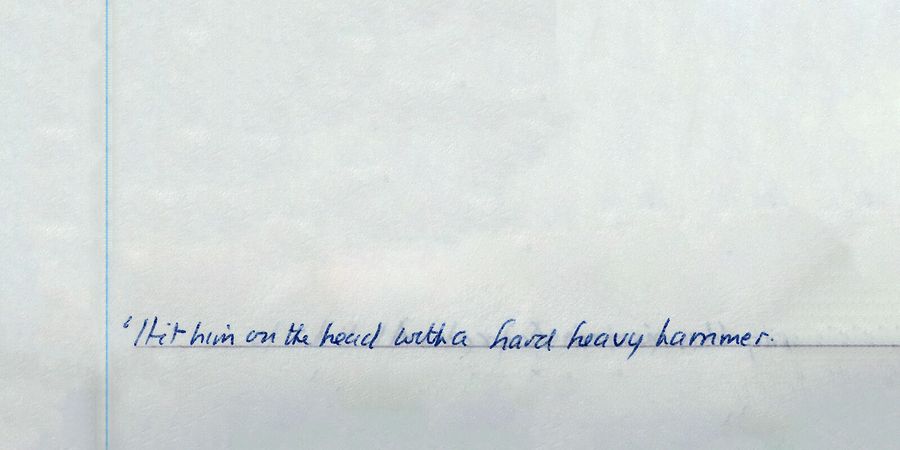 ‘Hit him on the head with a hard heavy hammer.